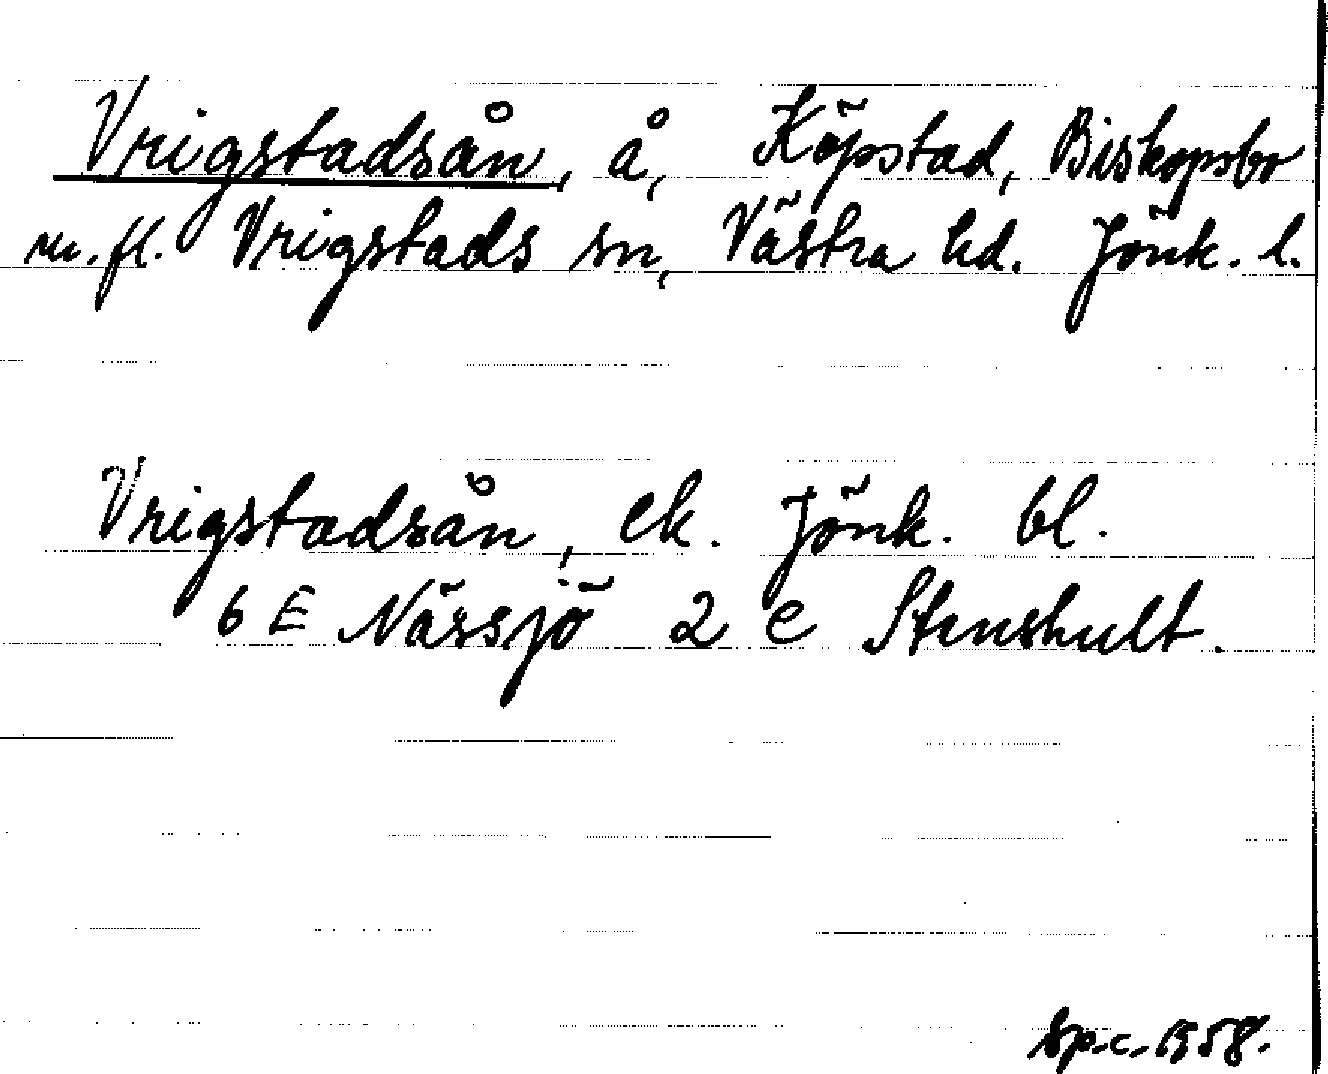 Vrigstadsån, å, Köpstad, Biskopsbo
m.fl. Vrigstads sn, Västra hd. Jönk. l.
Vrigstadsån, ek. Jönk. bl.
6 E Nässjö 2 e Stenshult.
Sp.c. 1958.